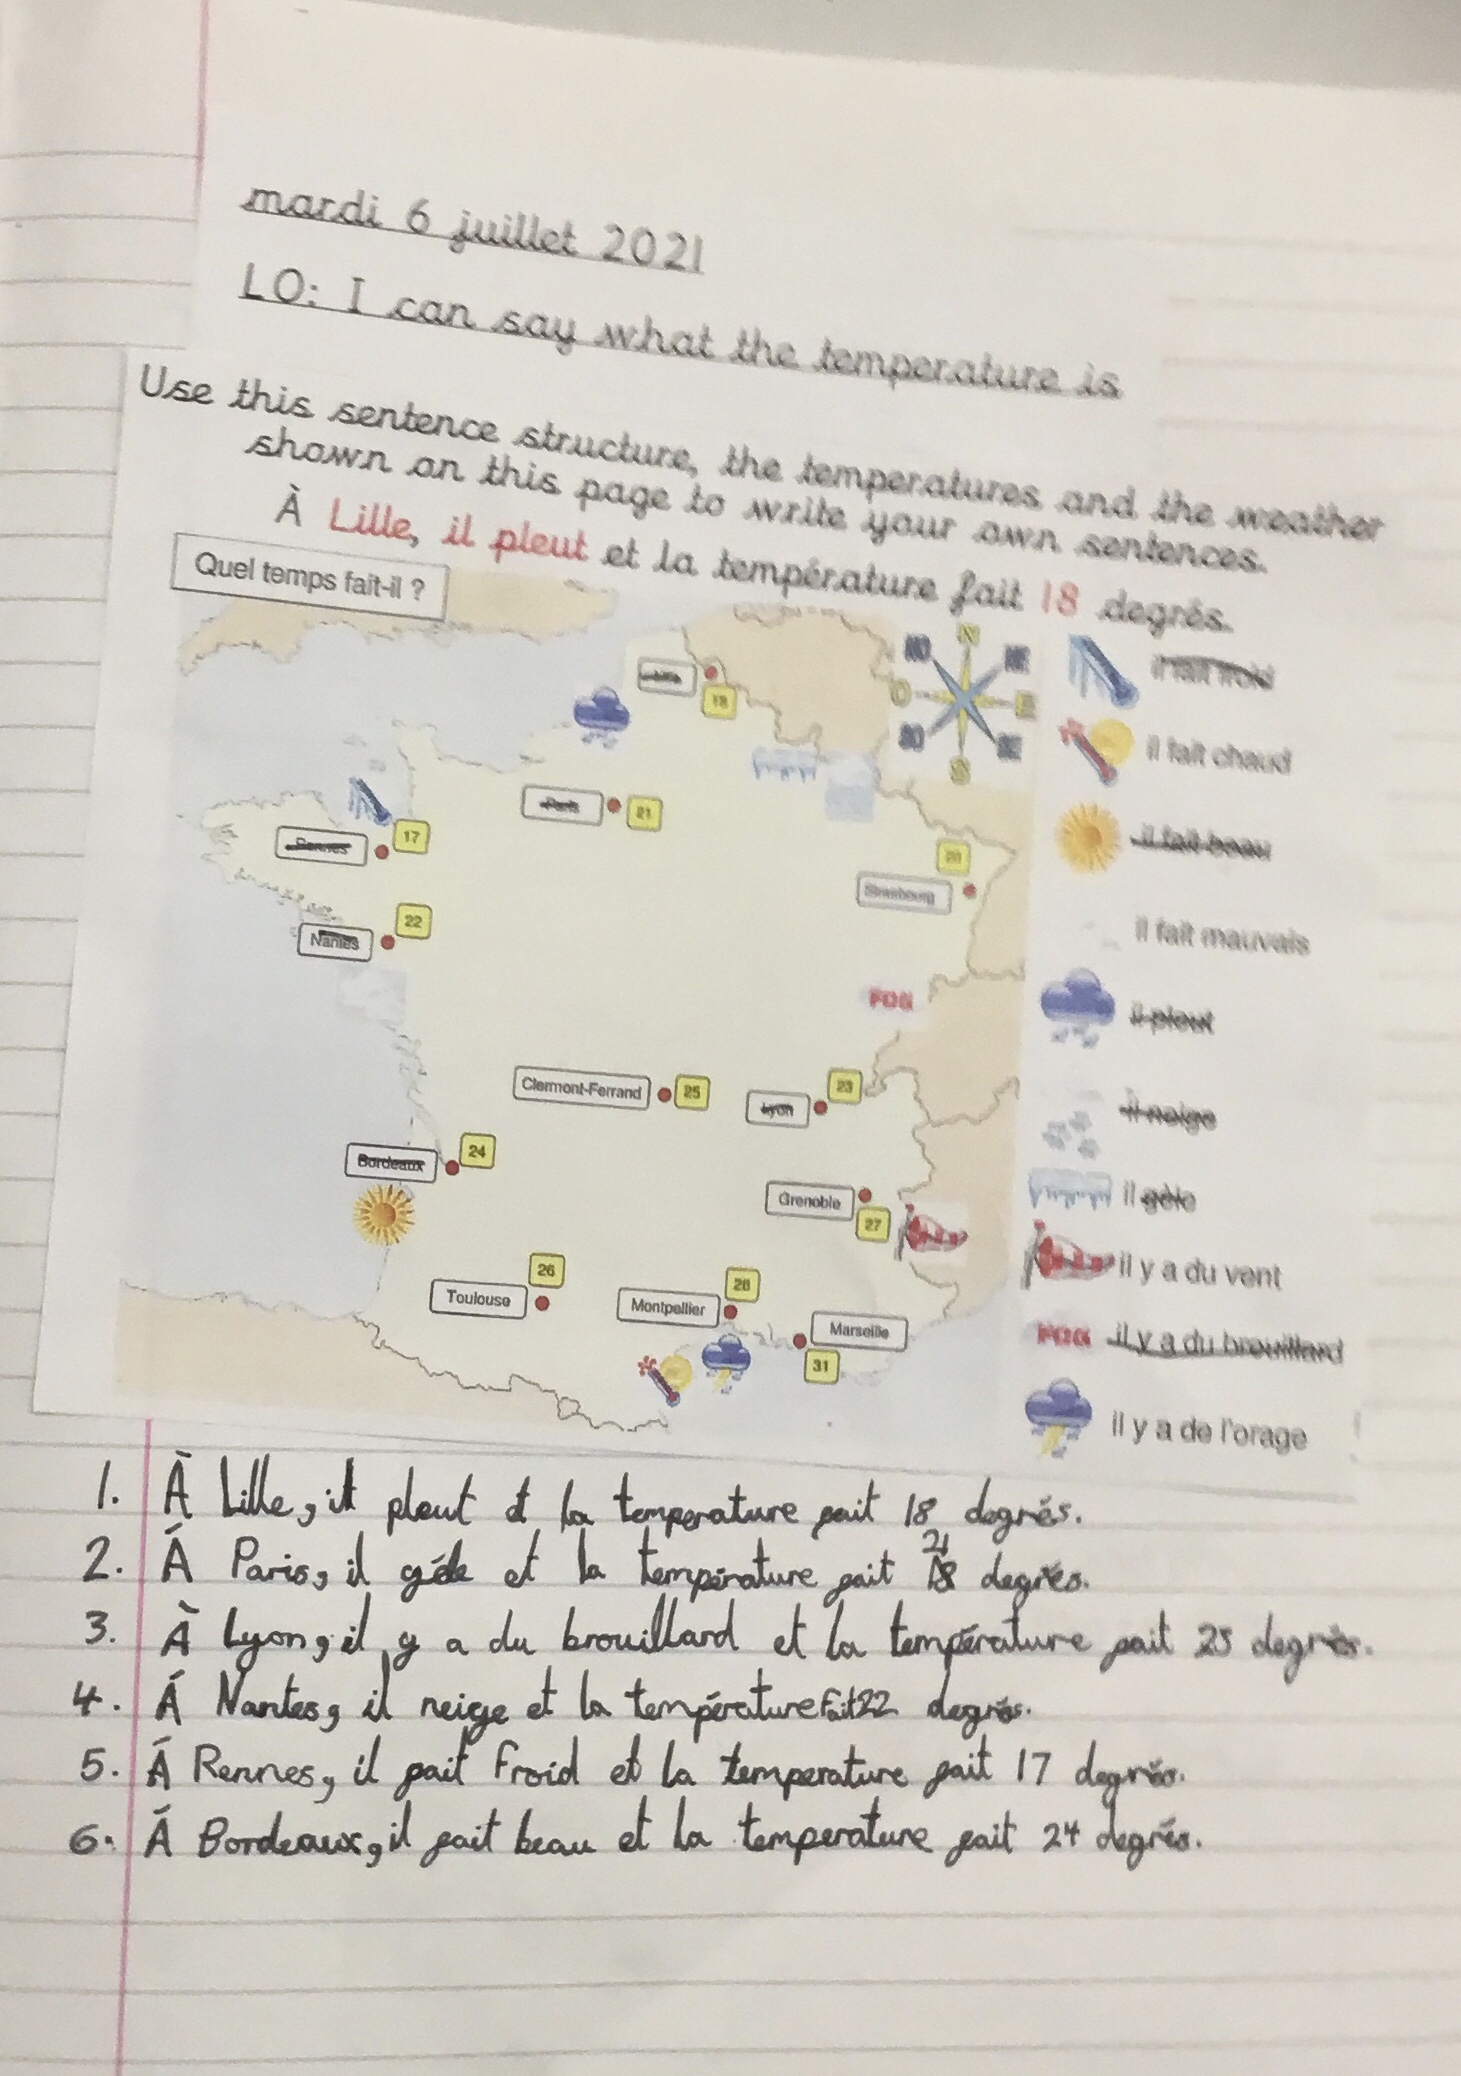 mardi 6 juillet 2021
LO: I can say what the temperature is
Use this sentence structure, the temperatures and the weather
shown on this page to write your own sentences.
À Lille, il pleut et la température fait 18 degrés.
Quel temps fait-il ?
N
NO
NE
O
E
SO
SE
S
Lille
18
Paris
21
Rennes
17
Strasbourg
20
Nantes
22
FOG
Clermont-Ferrand
25
Lyon
23
Bordeaux
24
Grenoble
27
Toulouse
26
Montpellier
28
Marseille
31
il fait froid
il fait chaud
il fait beau
il fait mauvais
il pleut
il neige
il gèle
il y a du vent
FOG il y a du brouillard
il y a de l'orage
1. À Lille, il pleut et la temperature fait 18 degrés.
2. Á Paris, il géle et la température fait 21 18 degrés.
3. À Lyon, il y a du brouillard et la température fait 25 degrés.
4. Á Nantes, il neige et la température fait 22 degrés.
5. Á Rennes, il fait froid et la temperature fait 17 degrés.
6. Á Bordeaux, il fait beau et la temperature fait 24 degrés.